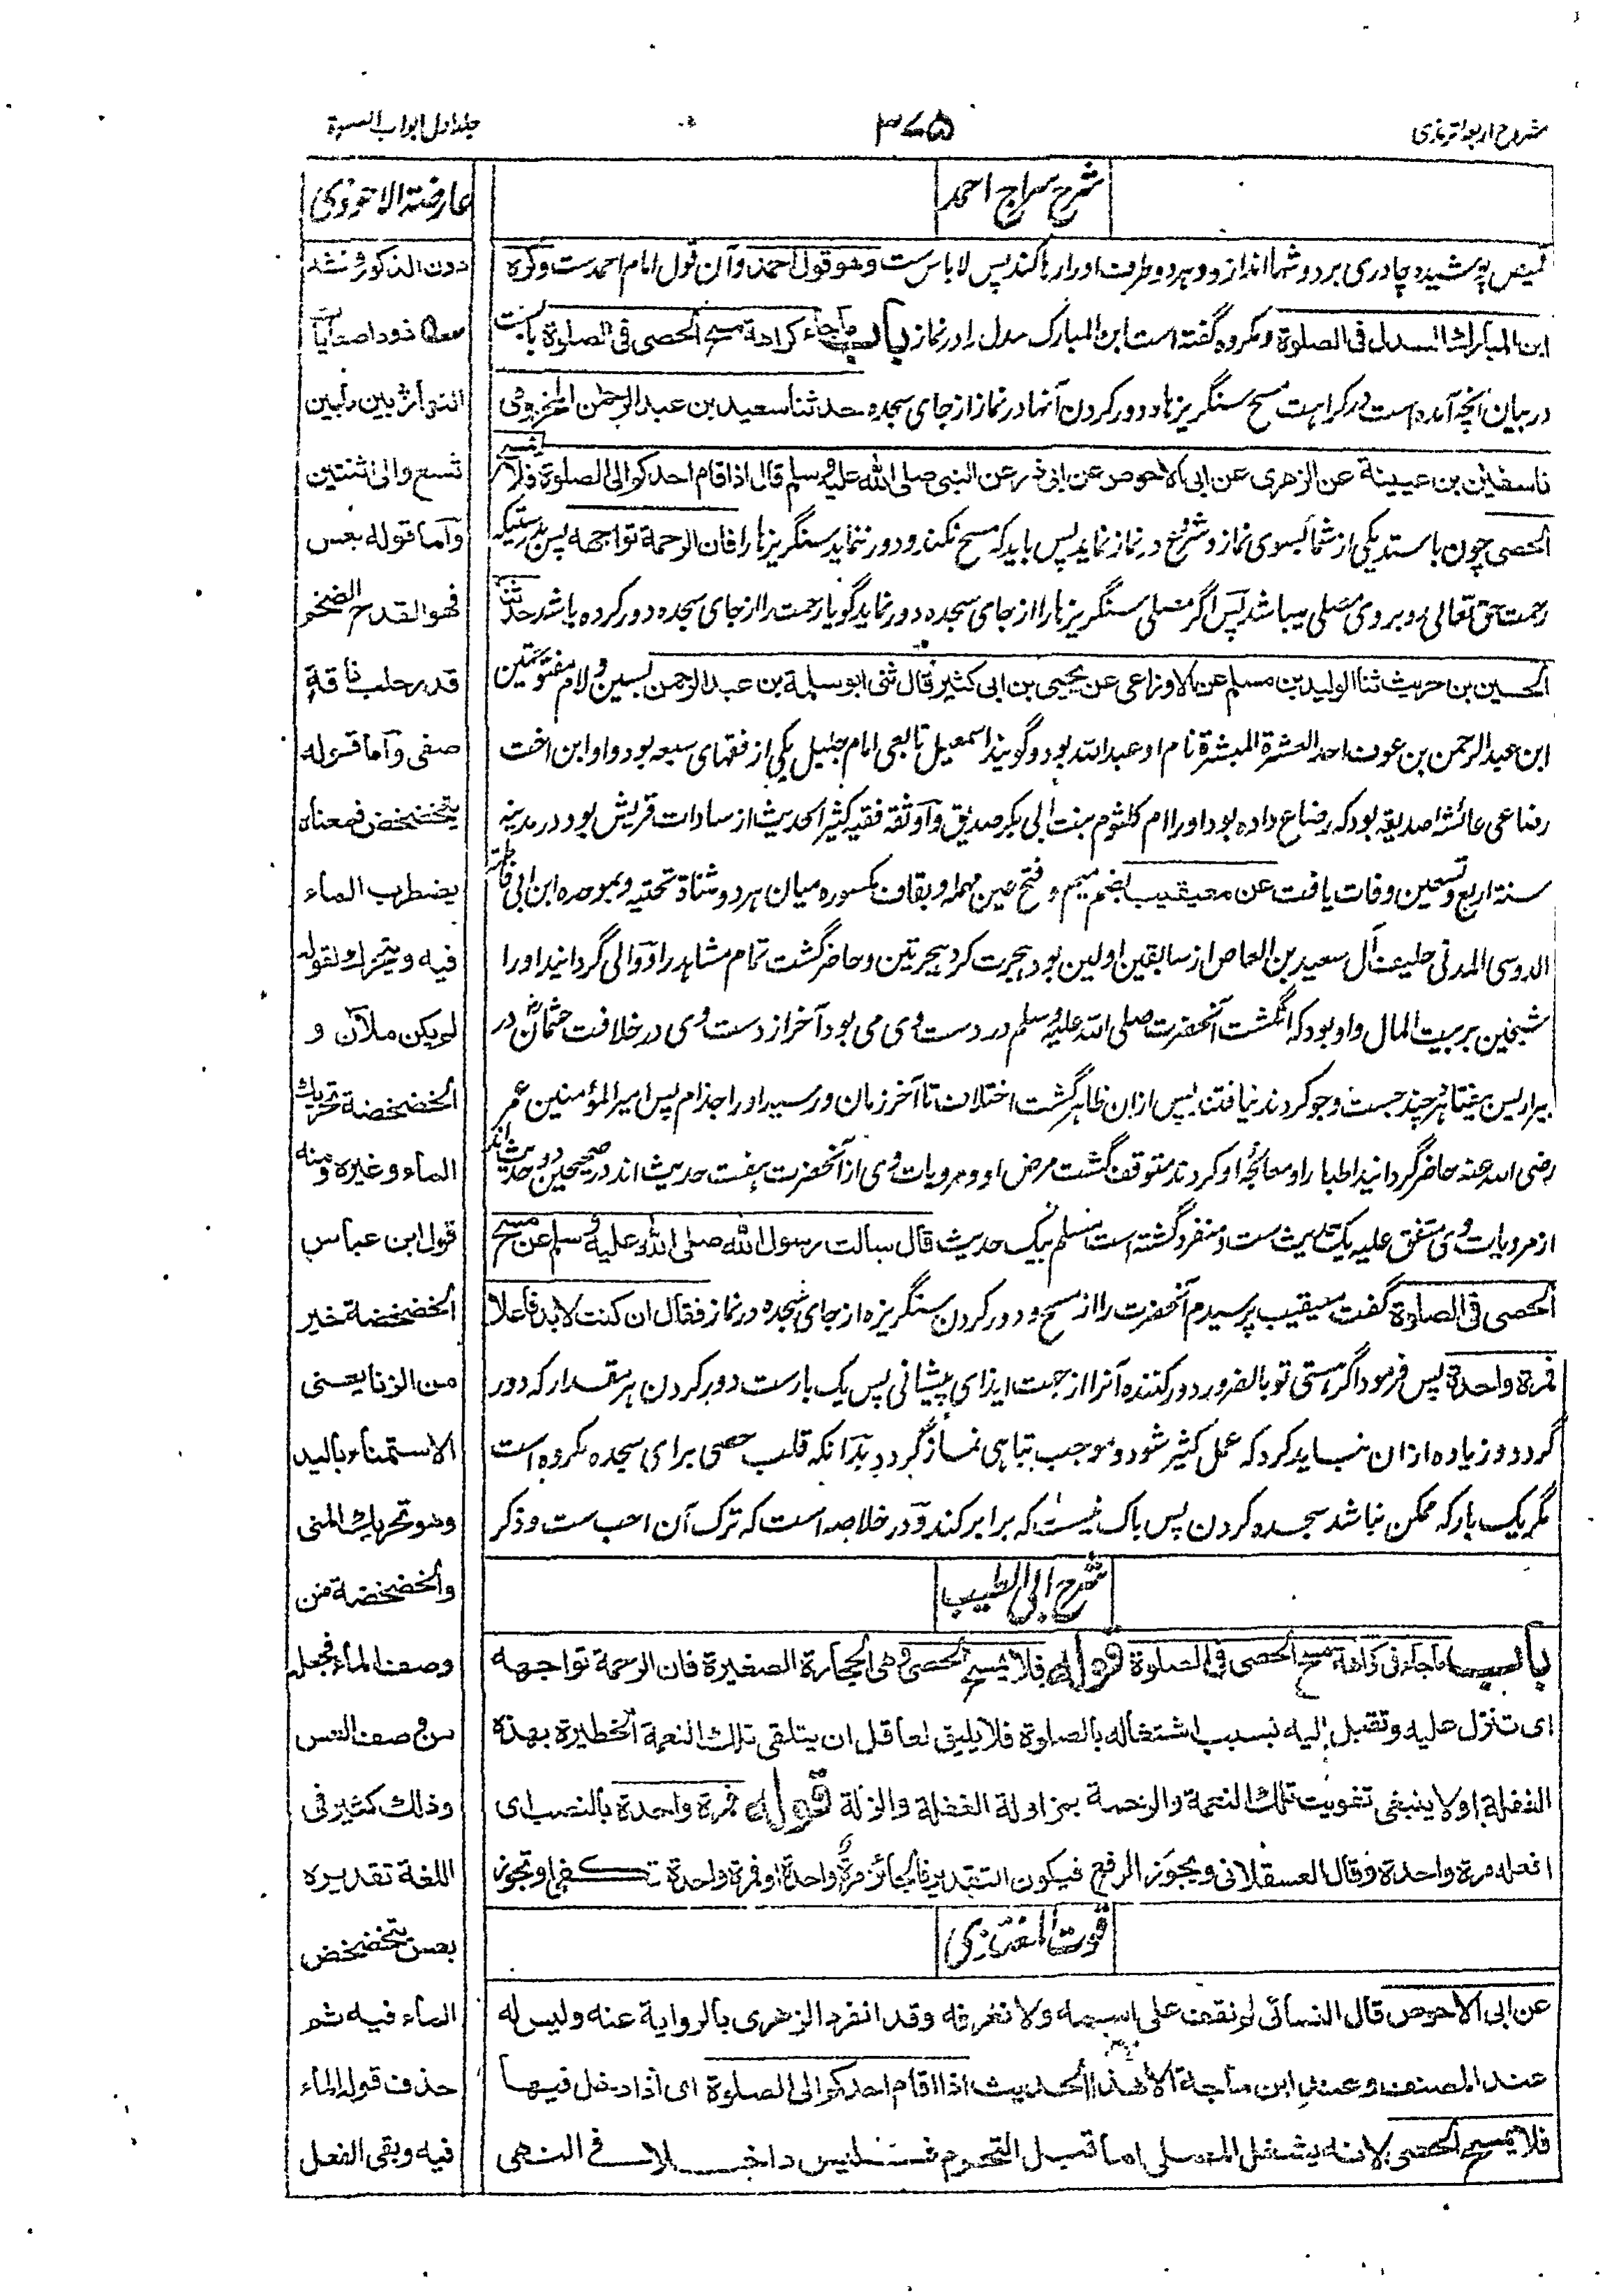 شروح اربعه ترمذی
۳۷۵
جلد اول ابواب الصلوة
شرح سراج احمد
قمیص پوشیده چادری بر دوشها اندازد و هر دو طرف او را رها کند پس لا باس ست وهو قول احمد وآن قول امام احمد ست وکره
ابن المبارک السدل فی الصلوة ومکروه گفته است ابن المبارک سدل را در نماز باب ماجاء کراهة مسح الحصی فی الصلوة بابست
در بیان آنچه آمده است در کراهت مسح سنگریزها و دور کردن آنها در نماز از جای سجده حدثنا سعید بن عبد الرحمن المخزومی
ناسفین بن عیینة عن الزهری عن ابی الاحوص عن ابی ذر عن النبی صلی الله علیه وسلم قال اذا قام احدکم الی الصلوة فلا یمسح
الحصی چون بایستد یکی از شما بسوی نماز و شروع در نماز نماید پس باید که مسح نکند و دور ننماید سنگریزها را فان الرحمة تواجهه پس بدرستیکه
رحمت حق تعالی روبروی مصلی میباشد پس اگر مصلی سنگریزها را از جای سجده دور نماید گویا رحمت را از جای سجده دور کرده باشد حدثنا
الحسین بن حریث ثنا الولید بن مسلم عن الاوزاعی عن یحیی بن ابی کثیر قال ثنی ابو سلمة بن عبد الرحمن بسین ولام مفتوحتین
ابن عبد الرحمن بن عوف احد العشرة المبشرة نام او عبد الله بود و گویند اسمعیل تابعی امام جلیل یکی از فقهای سبعه بود و او ابن اخت
رضاعی عائشه صدیقه بود که رضاع داده بود او را ام کلثوم بنت ابی بکر صدیق وآو ثقه فقیه کثیر الحدیث از سادات قریش بود در مدینه
سنة اربع وتسعین وفات یافت عن معیقیب بضم میم و فتح عین مهمله و بقاف مکسوره میان هر دو مثناة تحتیه و بموحده ابن ابی فاطمة
الدوسی المدنی حلیف آل سعید بن العاص از سابقین اولین بود هجرت کرد هجرتین و حاضر گشت تمام مشاهد را و والی گردانید او را
شیخین بر بیت المال و او بود که انگشت آنحضرت صلی الله علیه وسلم در دست وی می بود آخر از دست وی در خلافت عثمان در
بیر اریس بیفتاد هر چند جست و جو کردند نیافتند پس ازان ظاهر گشت اختلاف تا آخر زمان و رسید او را جذام پس امیر المؤمنین عمر
رضی الله عنه حاضر گردانید اطبا را و معالجه او کردند متوقف گشت مرض او و مرویات وی از آنحضرت هفت حدیث اند در صحیحین دو حدیث اند
از مرویات وی متفق علیه یک حدیث ست و منفرد گشته است مسلم بیک حدیث قال سالت رسول الله صلی الله علیه وسلم عن مسح
الحصی فی الصلوة گفت معیقیب پرسیدم آنحضرت را از مسح و دور کردن سنگریزه از جای سجده در نماز فقال ان کنت لابد فاعلا
فمرة واحدة پس فرمود اگر هستی تو بالضرور دور کننده آنرا از جهت ایذای پیشانی پس یک بارست دور کردن هر مقدار که دور
گردد و زیاده ازان نباید کرد که عمل کثیر شود و موجب تباهی نماز گردد بدانکه قلب حصی برای سجده مکروه است
مگر یک بار که ممکن نباشد سجده کردن پس باک نیست که برابر کند ودر خلاصه است که ترک آن احب ست و ذکر
شرح ابی الطیب
باب ماجاء فی کراهة مسح الحصی فی الصلوة قوله فلا یمسح الحصی وهی الحجارة الصغیرة فان الرحمة تواجهه
ای تنزل علیه وتقبل الیه بسبب اشتغاله بالصلوة فلا یلیق لعاقل ان یتلقی تلک النعمة الخطیرة بهذه
الغفلة اولا ینبغی تفویت تلک النعمة والرحمة بمزاولة الغفلة والزلة قوله فمرة واحدة بالنصب ای
افعله مرة واحدة وقال العسقلانی ویجوز الرفع فیکون التقدیر فالجائز مرة واحدة او فمرة واحدة تکفی او تجوز
قوت المغتذی
عن ابی الاحوص قال النسائی لم نقف علی اسمه ولا نعرفه وقد انفرد الزهری بالروایة عنه ولیس له
عند المصنف وعند ابن ماجة الا هذا الحدیث اذا قام احدکم الی الصلوة ای اذا دخل فیها
فلا یمسح الحصی لانه یشغل المصلی اما قبل التحرم فلیس داخلا فی النهی
عارضة الاحوذی
دون الذکور ثم نشد
معا ذود اصدایا
النهار ثم بین مابین
تسع والی اثنتین
وآما قوله بعس
فهو القدح الضخم
قدر حلب ناقة
صفی وآما قوله
یتخضخض فمعناه
یضطرب الماء
فیه ویتحرک ولقوله
لم یکن ملآن و
الخضخضة تحریک
الماء وغیره ومنه
قول ابن عباس
الخضخضة خیر
من الزنا یعنی
الاستمناء بالید
وهو تحریک المنی
والخضخضة من
وصف الماء فجعله
من صفة العس
وذلک کثیر فی
اللغة تقدیره
بعس یتخضخض
الماء فیه ثم
حذف قوله الماء
فیه وبقی الفعل